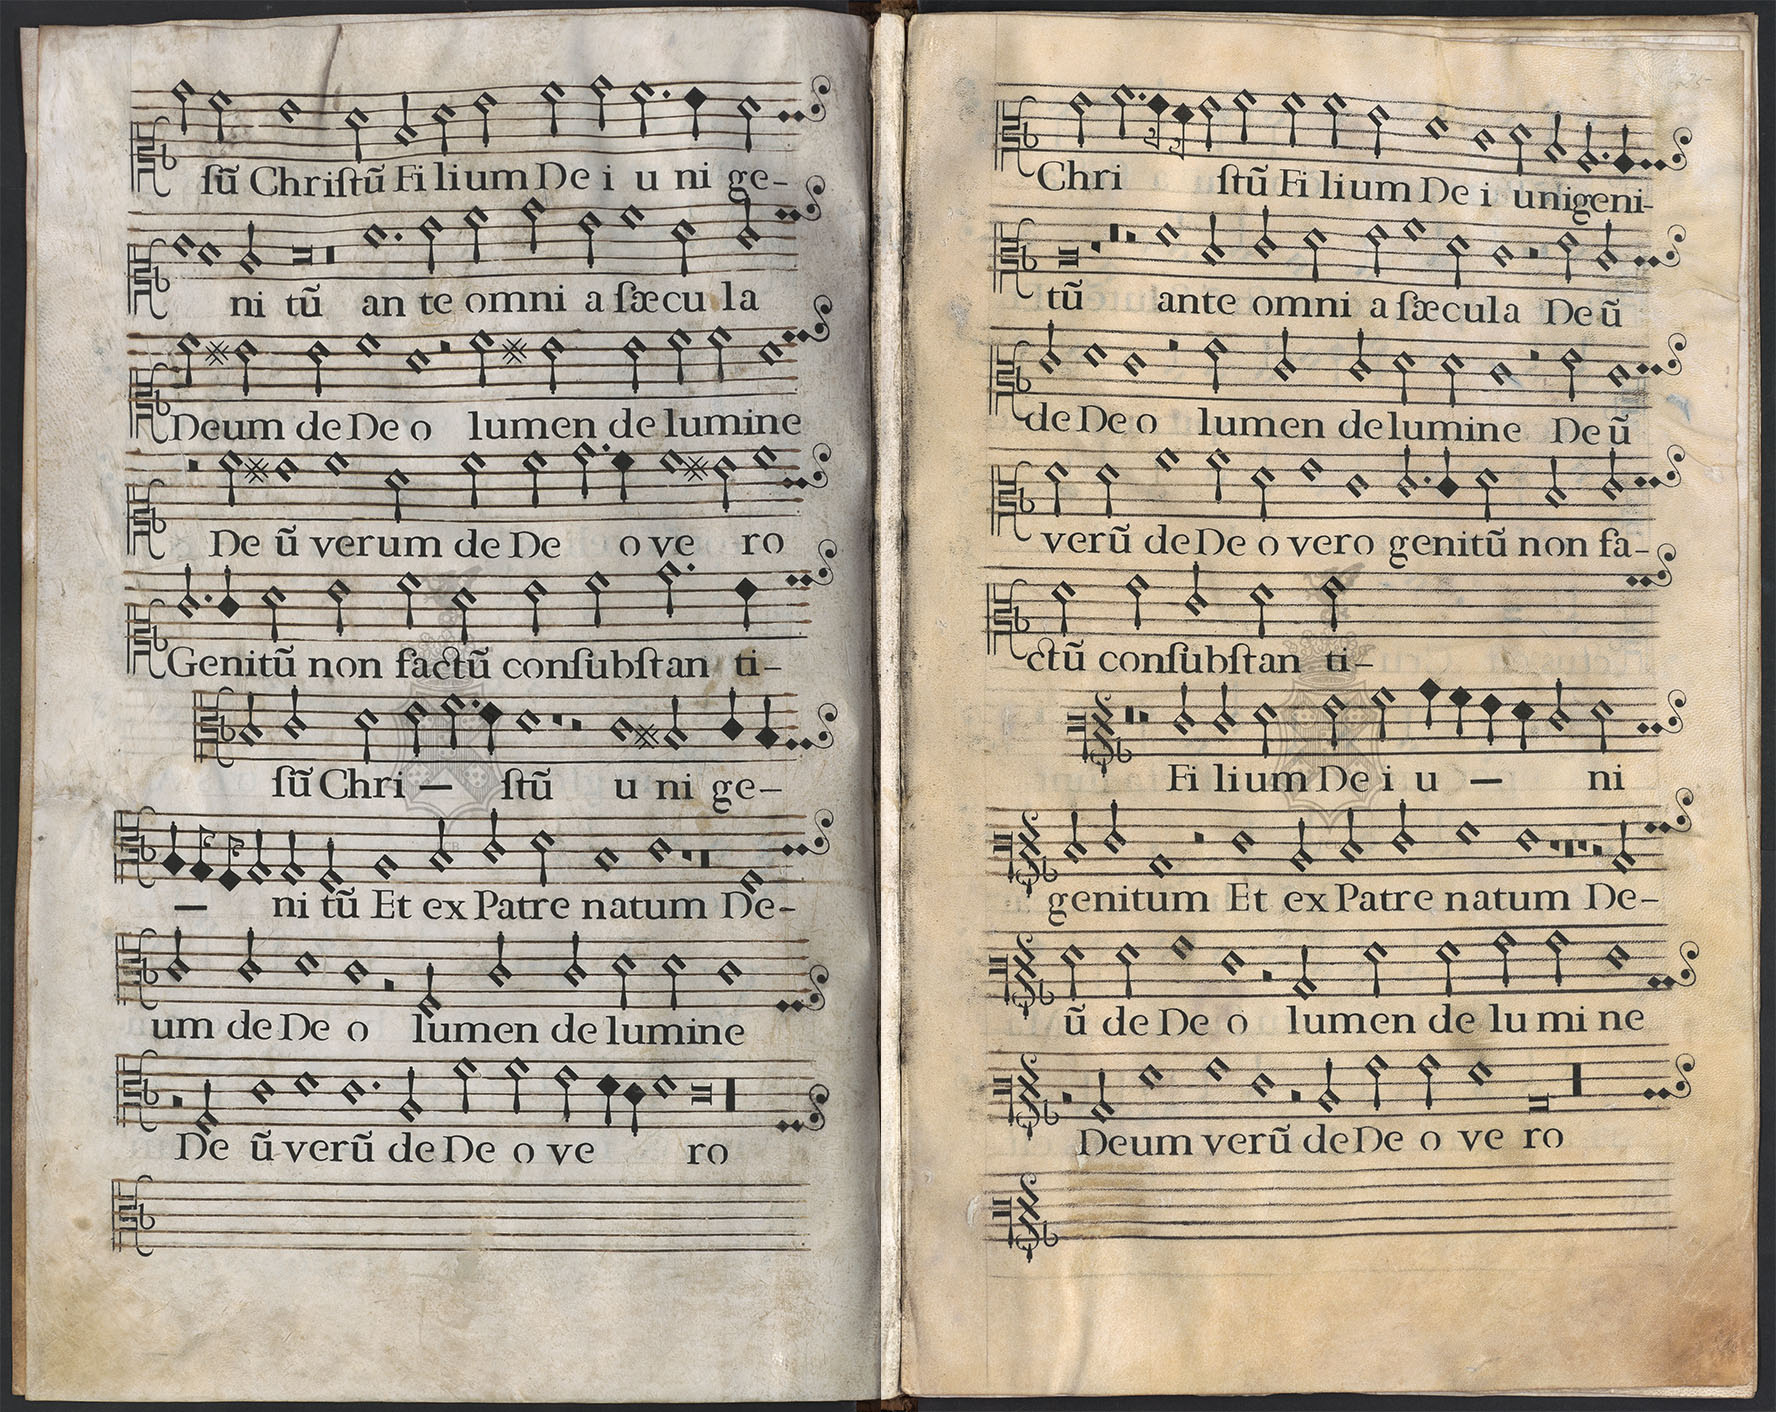 ſũ Chriſtũ Fi lium De i u ni ge-
ni tũ an te omni a ſæcu la
Deum de De o lumen de lumine
De ũ verum de De o ve ro
Genitũ non factũ conſubſtan ti-
ſũ Chri — ſtũ u ni ge-
— ni tũ Et ex Patre natum De-
um de De o lumen de lumine
De ũ verũ de De o ve ro
Chri ſtũ Fi lium De i unigeni-
tũ ante omni a ſæcula De ũ
de De o lumen de lumine De ũ
verũ de De o vero genitũ non fa-
ctũ conſubſtan ti-
Fi lium De i u — ni
genitum Et ex Patre natum De-
ũ de De o lumen de lu mi ne
Deum verũ de De o ve ro